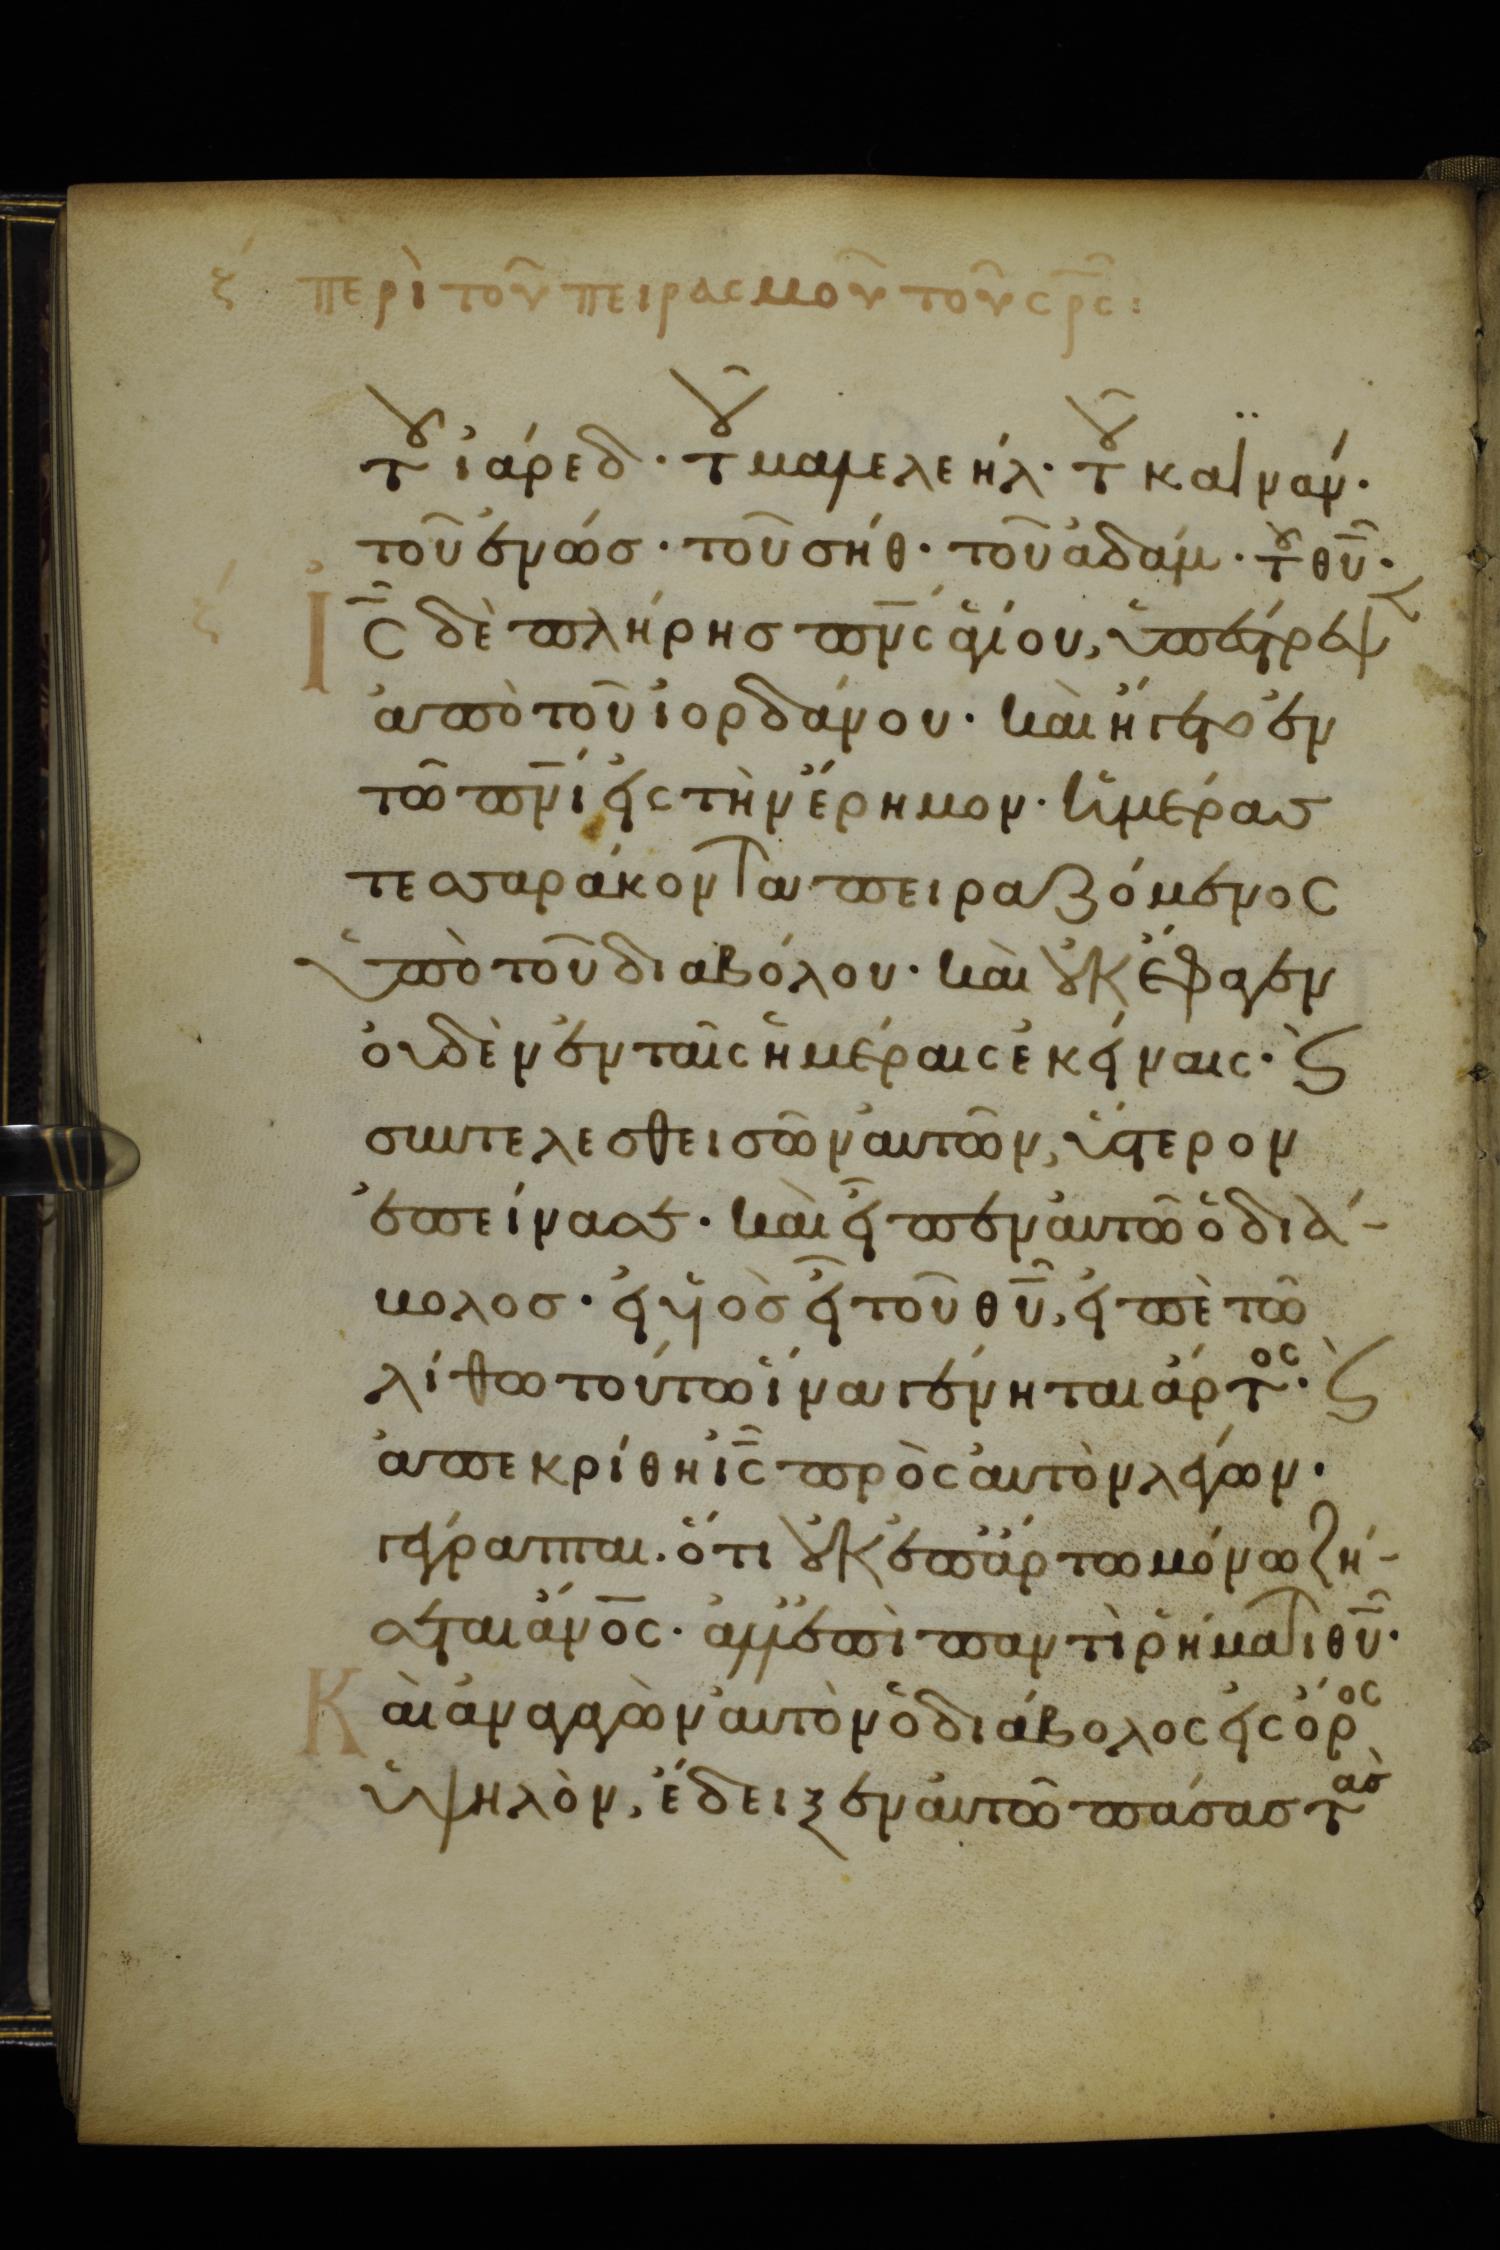 ζ´ περὶ τοῦ πειρασμοῦ τοῦ σρ̅ς:
τοῦ ἰάρεδ· τοῦ μαλελεήλ· τοῦ καϊνάν·
τοῦ ἐνώς· τοῦ σήθ· τοῦ ἀδάμ· τοῦ θυ̅·
ζ´ Ἰς̅ δὲ πλήρης πν̅ς ἁγίου, ὑπέστρεψεν
ἀπὸ τοῦ ἰορδάνου· καὶ ἤγετο ἐν
τῶ πν̅ι εἰς τὴν ἔρημον· ἡμέρας
τεσσαράκοντα πειραζόμενος
ὑπὸ τοῦ διαβόλου· καὶ οὐκ ἔφαγεν
οὐδὲν ἐν ταῖς ἡμέραις ἐκείναις· ϗ
συντελεσθεισῶν αὐτῶν, ὕστερον
ἐπείνασε· καὶ εἶπεν αὐτῶ ὁ διά-
βολος· εἰ υἱὸς εἶ τοῦ θυ̅, εἰπὲ τῶ
λίθω τούτω ἵνα γένηται ἄρτος· ϗ
ἀπεκρίθη ἰς̅ πρὸς αὐτὸν λέγων·
γέγραπται· ὅτι οὐκ ἐπ ἄρτω μόνω ζή-
σεται ἄνο̅ς· ἀλλ ἐπὶ παντὶ ῥήματι θυ̅·
Καὶ ἀναγαγὼν αὐτὸν ὁ διάβολος εἰς ὄρος
ὑψηλὸν, ἔδειξεν αὐτῶ πάσας τὰς